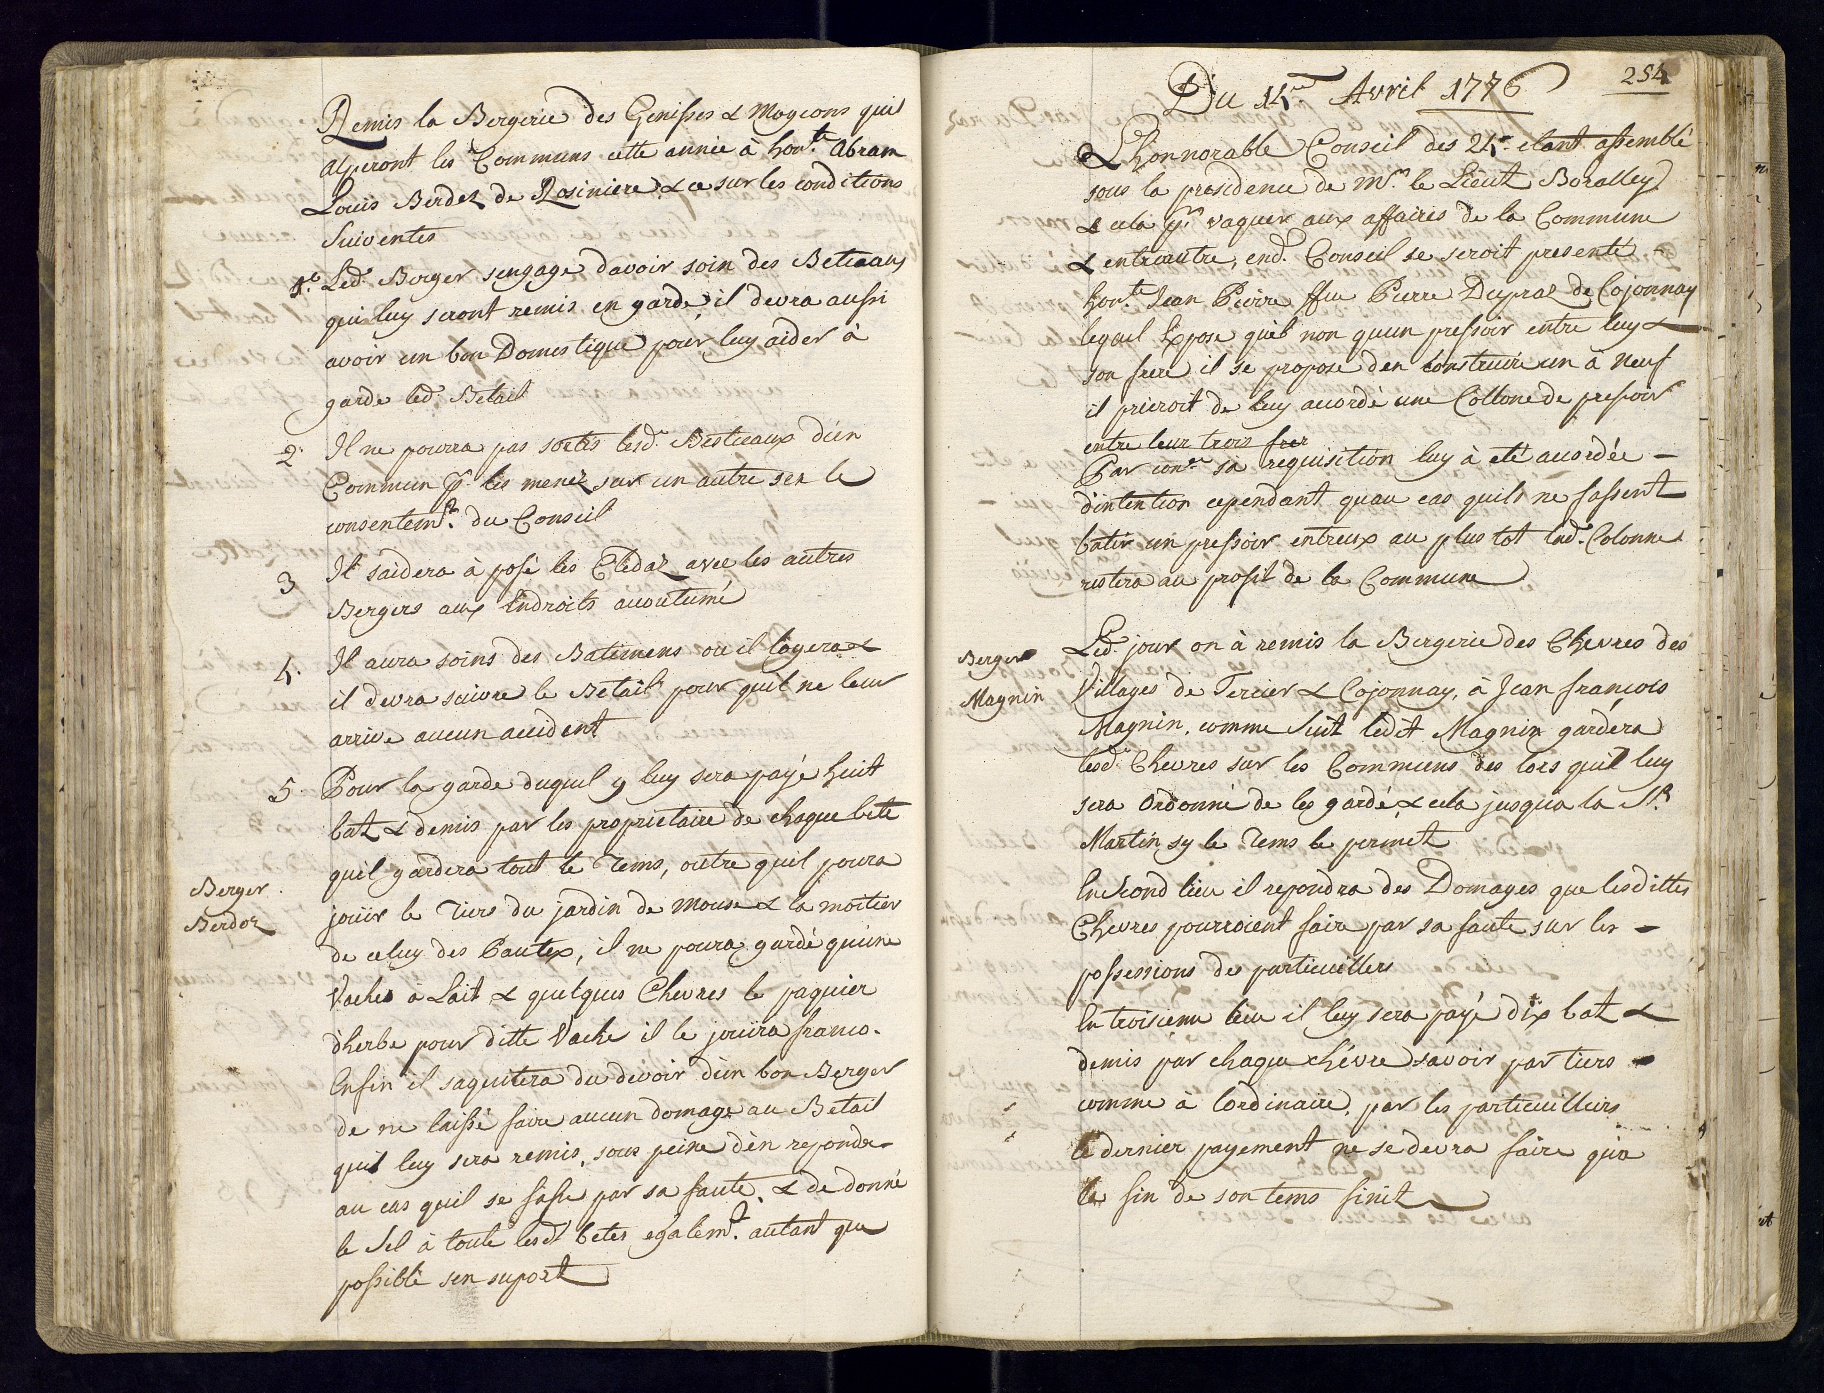 Remis la Bergerie des Genisses & Mogeons qui
alperont les Communs cette année à hon.te Abram
Louis Berdoz de Rosiniere & ce sur les conditions
Suiventes
1.o Led. Berger sengage davoir soin des Betieaux
qui luy seront remis en garde, il devra aussi
avoir un bon Domestique pour luy aider à
garde led.t Betail
2. Il ne pourra pas sortir lesd.ts Bestieaux d'un
Commun p.r les menez sur un autre sen le
consentem.t du Conseil
3 Il saidera à posé les Cledaz avec les autres
Bergers aux Endroits acoutumé
4. Il aura soins des Batimens ou il logera &
il devra suivre le Betail pour quil ne leur
arrive aucun accident
5. Pour la garde duquel y luy sera payé huit
batz & demis par les proprietaire de chaque bete
quil gardera tout le Tems, outre quil poura
Berger
Berdoz
jouïr le Tiers du jardin de Mouse & la moitier
de celuy des Pautex, il ne poura gardé quúne
Vaches à Lait & quelques Chevres le paquier
dherbe pour ditte Vache il le jouïra franco.
Enfin il saquitera du devoir dún bon Berger
de ne laissé faire aucun domage au Betail
qui luy sera remis, sous peine dèn repondre
au cas quil se fasse par sa faute, & de donné
le Sel à toute lesd.t betes egalem.t autant que
possible sen suport
254
Du 14.me Avril 1776
L'honnorable Conseil des 24.re etant assemblé
sous la presidence de M.r le Lieut Boralley
& cela p.r vaquer aux affaires de la Commune
& entreautre, end. Conseil se seroit presenté
hon.te Jean Pierre ffeu Pierre Dupraz de Cojonnay
lequel Expose quil non quun pressoir entre luy &
son frere il se propose d'en construire un à Neuf
il prieroit de luy accordé une Collone de pressoir
entre leur trois frer
Par con.er sa requisition luy à eté accordée
d'intention cependant quau cas quils ne fassent
batir un pressoir entreux au plus tot lad. Colonne
restera au profit de la Commune
Berger
Magnin
Led. jour on à remis la Bergerie des Chevres des
Villages de Tercier & Cojonnay, à Jean francois
Magnin, comme Suit ledit Magnin gardera
lesd. Chevres sur les Communs des lors quil luy
sera Ordonné de les gardé & cela jusqua la S.t
Martin sy le Tems le permet
En second lieu il repondra des Domages que lesdittes
Chevres pourroient faire par sa faute sur les
possessions des particuillers
En troisieme lieu il luy sera payé dix batz &
demis par chaque chévre savoir par tiers
comme à lordinaire, par les particuillers
le dernier payement ne se devra faire quà
la fin de son tems finit